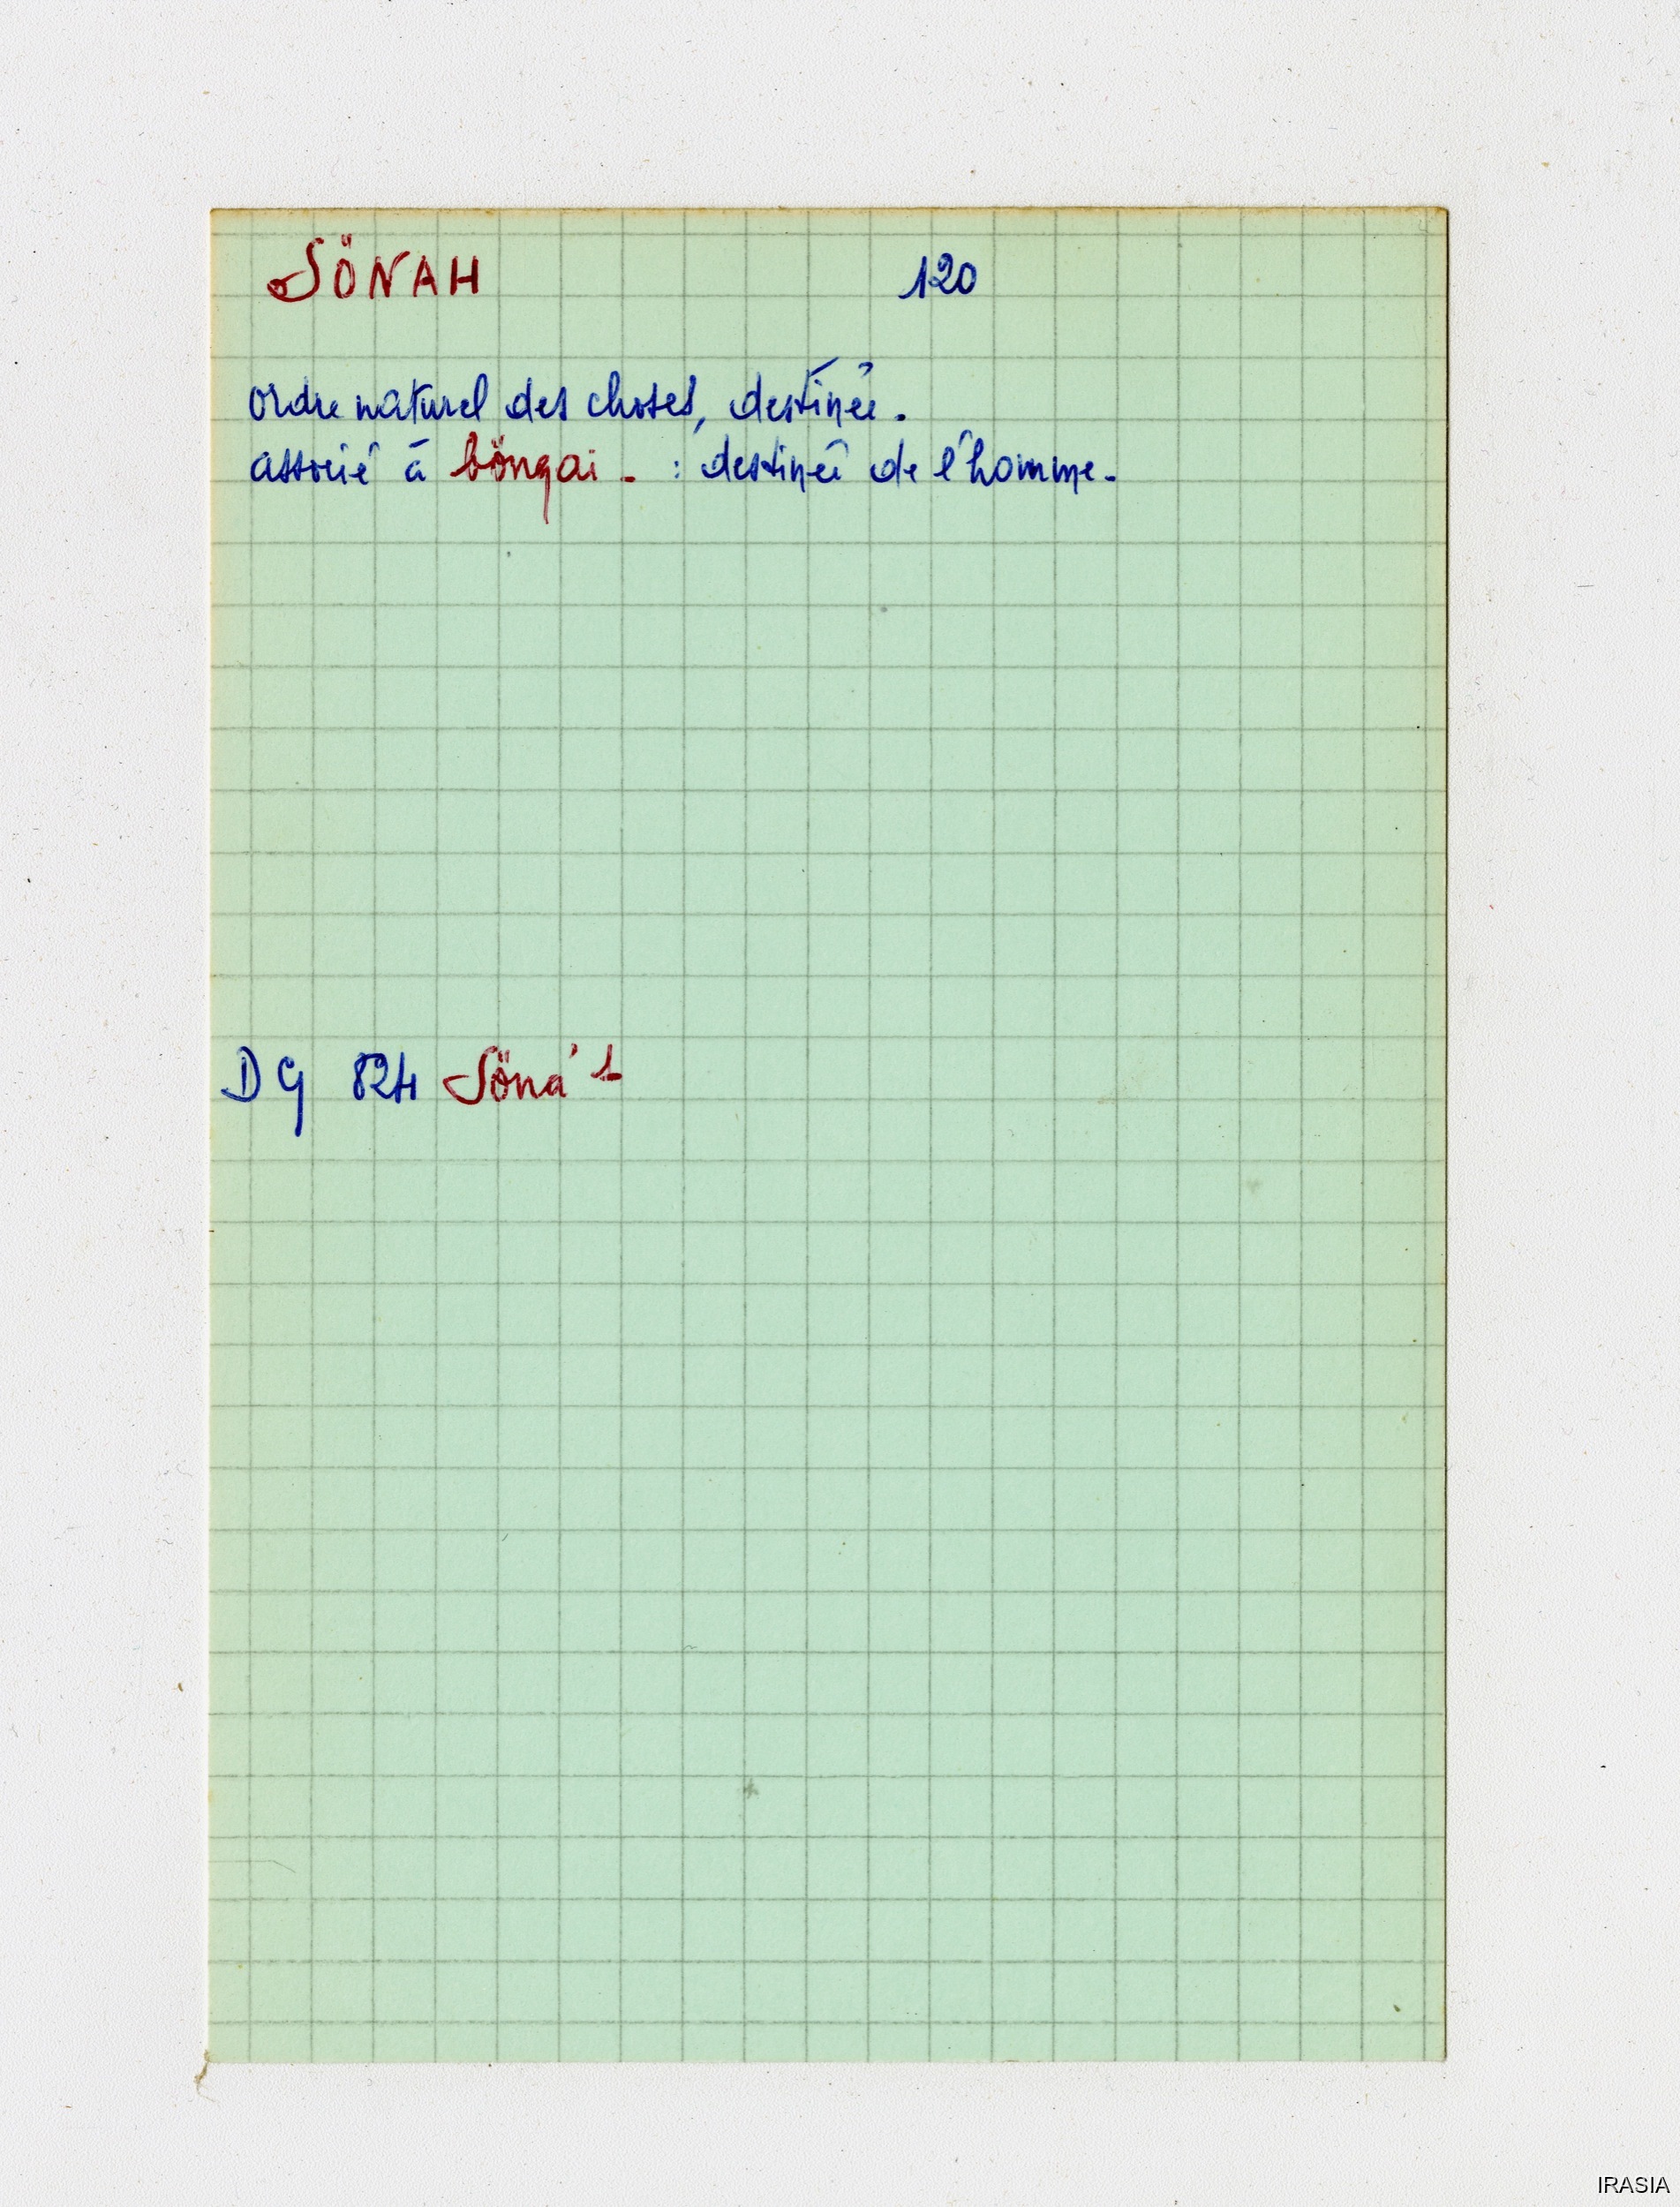 SÖNAH 120
ordre naturel des choses, destinée.
associé à böngai - : destinée de l'homme.
DG 824 Söna' 1
IRASIA